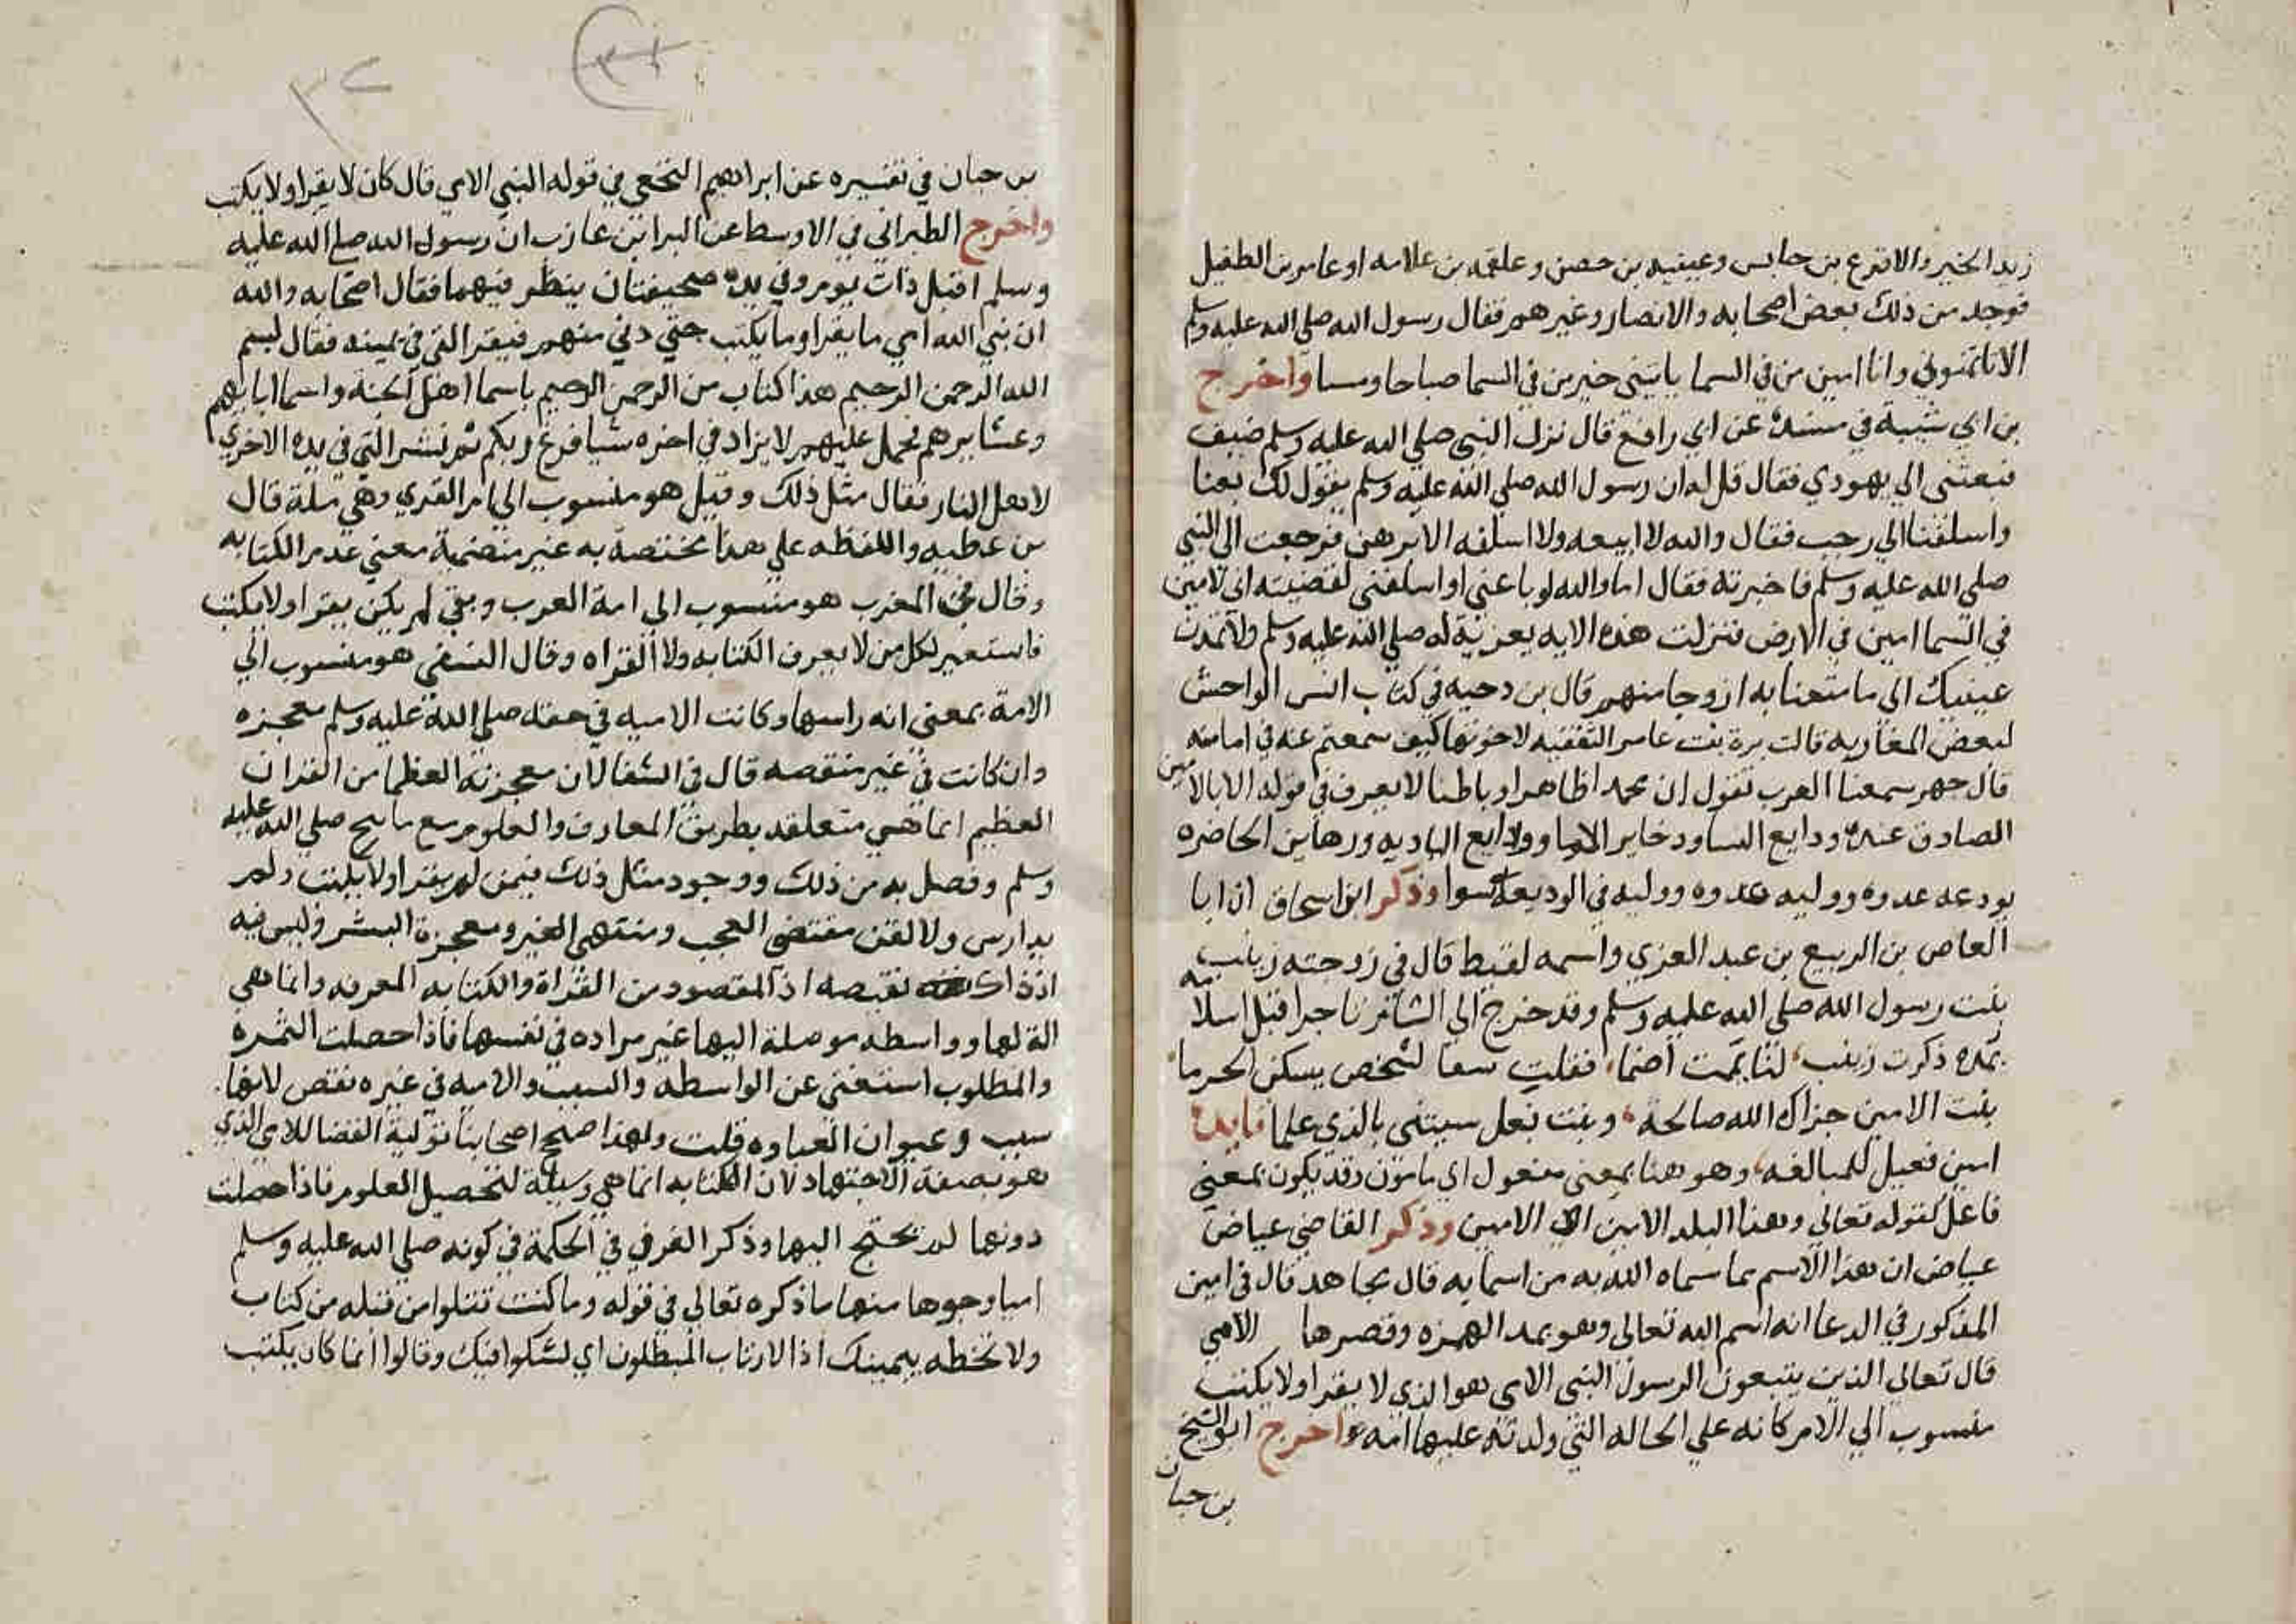 زيد الخير والاقرع بن حابس وعيينه بن حصن وعلقمه بن علاثه او عامر بن الطفيل
فوجد من ذلك بعض اصحابه والانصار وغيرهم فقال رسول الله صلي الله عليه وسلم
الا تاتمنوني وانا امين من في السما ياتيني خبر من في السما صباحا ومسا واخرج
بن ابي شيبة في مسنده عن ابي رافع قال نزل النبي صلي الله عليه وسلم ضيف
فبعثني الي يهودي فقال قل له ان رسول الله صلي الله عليه وسلم يقول لك بعنا
واسلفنا الي رجب فقال والله لا ابيعه ولا اسلفه الا برهن فرجعت الي النبي
صلي الله عليه وسلم فاخبرته فقال اما والله لو باعني او اسلفني لقضيته اني لامين
في السما امين في الارض فنزلت هذه الايه يعزيه له صلي الله عليه وسلم ولا تمدن
عينيك الي ما متعنا به ازواجا منهم قال بن دحيه في كتاب انس الواحش
لبعض المغاربه قالت برة بنت عامر الثقفيه لاخوتها كيف سمعتم عنه في امانته
قال جهر سمعنا العرب تقول ان محمدا ظاهرا وباطنا لا يعرف في قوله الا بالامين
الصادق عنده ودايع النسا وذخاير الاما وودايع الباديه ورهاين الحاضره
يودعه عدوه ووليه عدوه ووليه في الوديعة سوا وذكر ابن اسحاق ان ابا
العاص بن الربيع بن عبد العزي واسمه لقيط قال في زوجته زينب
بنت رسول الله صلي الله عليه وسلم وقد خرج الي الشام تاجرا قبل اسلامه
بمده ذكرت زينب لما يممت اضما فقلت سقيا لشخص يسكن الحرما
بنت الامين جزاك الله صالحة وبنت بعل سيثني بالذي علما فايده
امين فعيل للمبالغه وهو هنا بمعني مفعول اي مامون وقد يكون بمعني
فاعل كقوله تعالي وهذا البلد الامين اي الامين وذكر القاضي عياض
عياض ان هذا الاسم مما سماه الله به من اسمايه قال مجاهد قال في امين
المذكور في الدعا انه اسم الله تعالي وهو بمد الهمزه وقصرها الامي
قال تعالي الذين يتبعون الرسول النبي الامي هو الذي لا يقرا ولا يكتب
منسوب الي الام كانه علي الحاله التي ولدته عليها امه واخرج ابو الشيخ
بن حبان
بن حبان في تفسيره عن ابراهيم النخعي في قوله النبي الامي قال كان لا يقرا ولا يكتب
واخرج الطبراني في الاوسط عن البرا بن عازب ان رسول الله صلي الله عليه
وسلم اقبل ذات يوم وفي يده صحيفتان ينظر فيهما فقال اصحابه والله
ان نبي الله امي ما يقرا وما يكتب حتي دني منهم فيقر التي في يمينه فقال بسم
الله الرحمن الرحيم هذا كتاب من الرحمن الرحيم باسما اهل الجنة واسما ابايهم
وعشايرهم مجمل عليهم لا يزاد في اخره شيا فرغ ربكم ثم نشر التي في يده الاخري
لاهل النار فقال مثل ذلك وقيل هو منسوب الي ام القري وهي مكة قال
بن عطيه واللفظه علي هذا مختصة به غير متضمنة معني عدم الكتابه
وقال في المغرب هو منسوب الي امة العرب وهي لم يكن يقرا ولا يكتب
فاستعير لكل من لا يعرف الكتابه ولا القراه وقال النسفي هو منسوب الي
الامة بمعني انه راسها وكانت الاميه في حقه صلي الله عليه وسلم معجزه
وان كانت في غير منقصه قال في الشفا لان معجزته العظما من القران
العظيم انما هي متعلقه بطريق المعارف والعلوم مع ما منح صلي الله عليه
وسلم وفضل به من ذلك ووجود مثل ذلك فيمن لم يقرا ولا يكتب ولم
يدارس ولا لقن مقتضي العجب ومنتهي العبر ومعجزة البشر وليس فيه
اذ ذاك نقيصه اذ المقصود من القراة والكتابه المعرفه وانما هي
الة لها وواسطه موصلة اليها غير مراده في نفسها فاذا حصلت الثمرة
والمطلوب استغني عن الواسطه والسبب والاميه في غيره نقص لانها
سبب وعنوان الغباوه قلت ولهذا صحح اصحابنا تولية القضا للامي الذي
هو بصفة الاجتهاد لان الكتابه انما هي وسيلة لتحصيل العلوم فاذا حصلت
دونها لم يحتج اليها وذكر العزفي في الحكمة في كونه صلي الله عليه وسلم
اميا وجوها منها ما ذكره تعالي في قوله وما كنت تتلوا من قبله من كتاب
ولا تخطه بيمينك اذا لارتاب المبطلون اي لشكوا فيك وقالوا انما كان يكتب